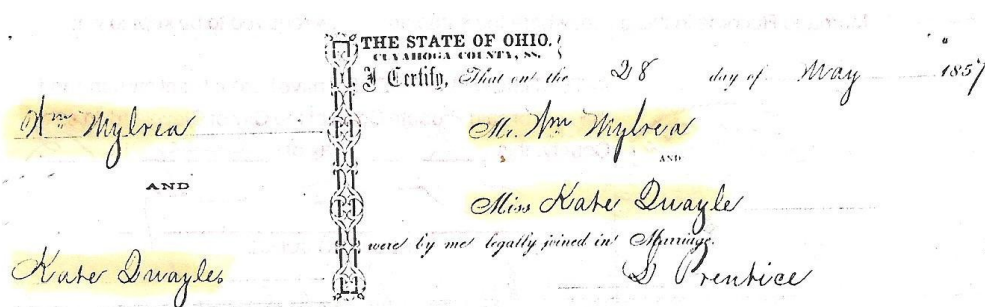 THE STATE OF OHIO,
CUYAHOGA COUNTY, SS.
I Certify, That on the 28 day of May 1857
Wm Mylrea
Mr. Wm Mylrea
AND
AND
Miss Kate Quayle
were by me legally joined in Marriage.
Kate Quayle
D Prentice